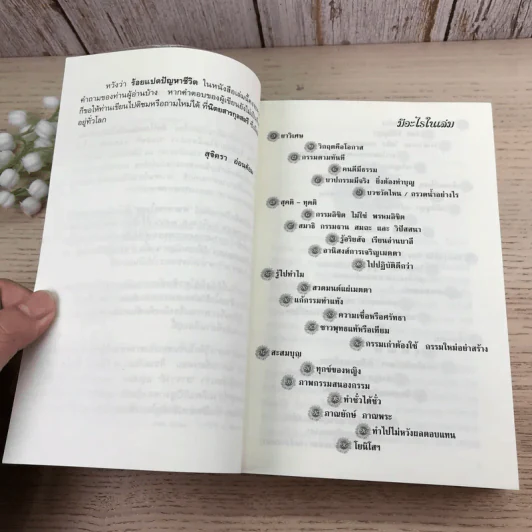 หวังว่า ร้อยแปดปัญหาชีวิต ในหนังสือเล่มนี้
คำถามของท่านผู้อ่านบ้าง หากคำตอบของผู้เขียนยังไม่
ก็ขอให้ท่านเขียนไปติชมหรือถามใหม่ได้ ที่นิตยสารกุลสตรี
อยู่ทั่วโลก
สุจิตรา
มีอะไรในเล่ม
ยาวิเศษ
วิกฤตคือโอกาส
กรรมตามทันที
คนดีมีธรรม
บาปกรรมมีจริง ยิ่งต้องทำบุญ
บวชวัดไหน / กรวดน้ำอย่างไร
สุคติ - ทุคติ
กรรมลิขิต ไม่ใช่ พรหมลิขิต
สมาธิ กรรมฐาน สมถะ และ วิปัสสนา
รู้อริยสัจ เรียนอ่านบาลี
อานิสงส์การเจริญเมตตา
ไปปฏิบัติดีกว่า
รู้ไปทำไม
สวดมนต์แผ่เมตตา
แก้กรรมทำแท้ง
ความเชื่อหรือศรัทธา
ชาวพุทธแท้หรือเทียม
กรรมเก่าต้องใช้ กรรมใหม่อย่าสร้าง
สะสมบุญ
ทุกข์ของหญิง
ภาพกรรมสนองกรรม
ทำชั่วได้ชั่ว
ภาณยักษ์ ภาณพระ
ทำไปไม่หวังผลตอบแทน
โยนิโสฯ